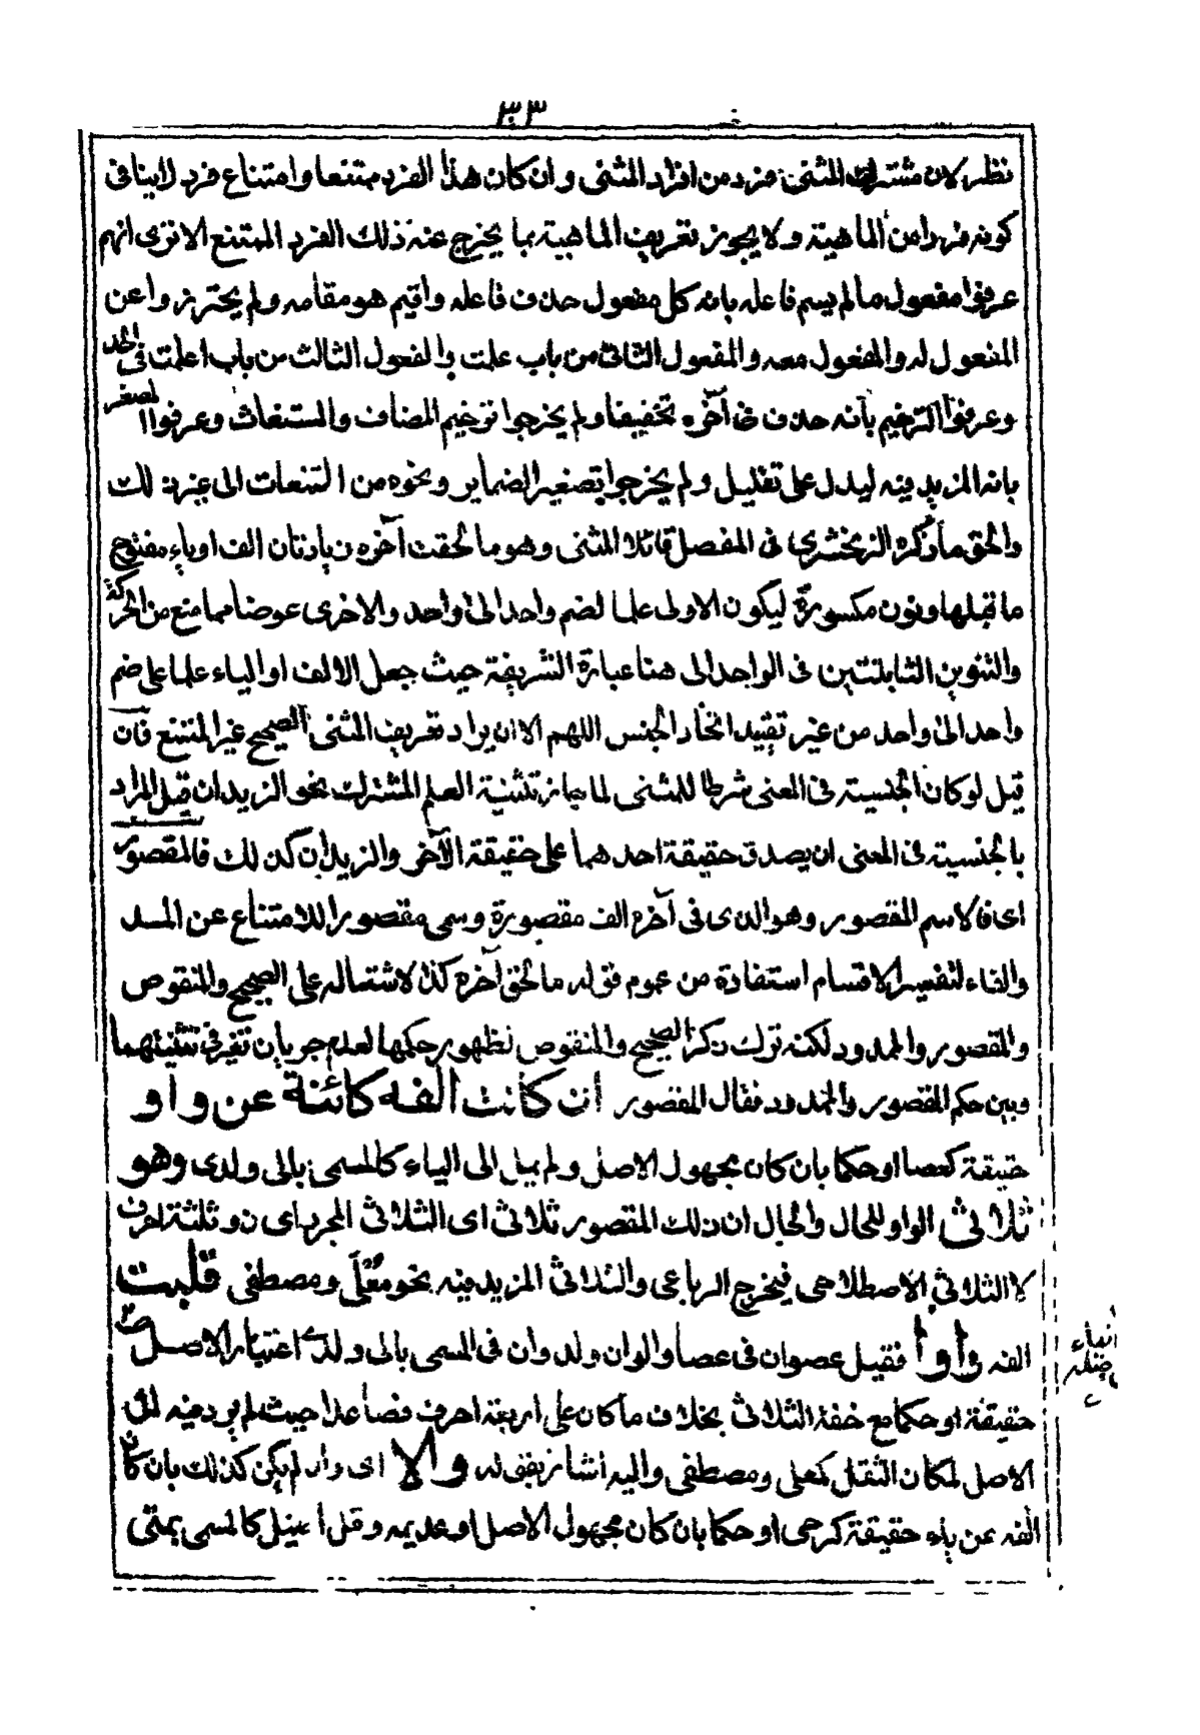 ٣٠٣
نظر لان مشترك المثنى فرد من افراد المثنى وان كان هذا الفرد ممتنعا وامتناع فرد لا ينافى
كونه فردا من الماهية ولا يجوز تعريف الماهية بما يخرج عنه ذلك الفرد الممتنع الا ترى انهم
عرفوا مفعول مالم يسم فاعله بانه كل مفعول حذف فاعله واقيم هو مقامه ولم يحترزوا عن
المفعول له والمفعول معه والمفعول الثانى من باب علمت والمفعول الثالث من باب اعلمت فى الحد
وعرفوا الترخيم بأنه حذف فى آخره تخفيفا ولم يخرجوا ترخيم المضاف والمستغاث وعرفوا المصغر
بانه المزيد فيه ليدل على تقليل ولم يخرجوا تصغير الضماير ونحوه من الممتنعات الى غير ذلك
والحق ما ذكره الزمخشرى فى المفصل قائلا المثنى وهو ما لحقت آخره زيادتان الف اوياء مفتوح
ما قبلها ونون مكسورة ليكون الاولى علما لضم واحد الى واحد والاخرى عوضا مما منع من الحركة
والتنوين الثابتتين فى الواحد الى هنا عبارة الشريفة حيث جعل الالف او الياء علما على ضم
واحد الى واحد من غير تقييد اتحاد الجنس اللهم الا ان يراد تعريف المثنى الصحيح غير الممتنع فان
قيل لو كان الجنسية فى المعنى شرطا للمثنى لما جاز تثنية العلم المشترك نحو الزيدان قيل المراد
بالجنسية فى المعنى ان يصدق حقيقة احدهما على حقيقة الآخر والزيدان كذلك فالمقصور
اى فالاسم المقصور وهو الذى فى آخره الف مقصورة وسمى مقصورا للامتناع عن المد
والفاء لتفسير الاقسام استفادة من عموم قوله ما لحق آخره كذا لاشتماله على الصحيح والمنقوص
والمقصور والممدود لكنه ترك ذكر الصحيح والمنقوص لظهور حكمها لعدم جريان تغير فى تثنيتهما
وبين حكم المقصور والممدود فقال المقصور ان كانت الفه كائنة عن واو
حقيقة كعصا او حكما بان كان مجهول الاصل ولم يمل الى الياء كالمسمى بالى ولدى وهو
ثلاثى الواو للحال والحال ان ذلك المقصور ثلاثى اى الثلاثى المجرد اى ذو ثلثة احرف
لا الثلاثى الاصطلاحى فيخرج الرباعى والثلاثى المزيد فيه نحو معلى ومصطفى قلبت
الفه واوا فقيل عصوان فى عصا والوان ولدوان فى المسمى بالى ولدى اعتبار الاصل
حقيقة او حكما مع خفة الثلاثى بخلاف ما كان على اربعة احرف فصاعدا حيث لم يرد فيه الى
الاصل لمكان الثقل كمعلى ومصطفى واليه اشار بقوله والا اى وان لم يكن كذلك بان كان
الفه عن ياء حقيقة كرحى او حكما بان كان مجهول الاصل او عديمه وقد اميل كالمسمى بمتى